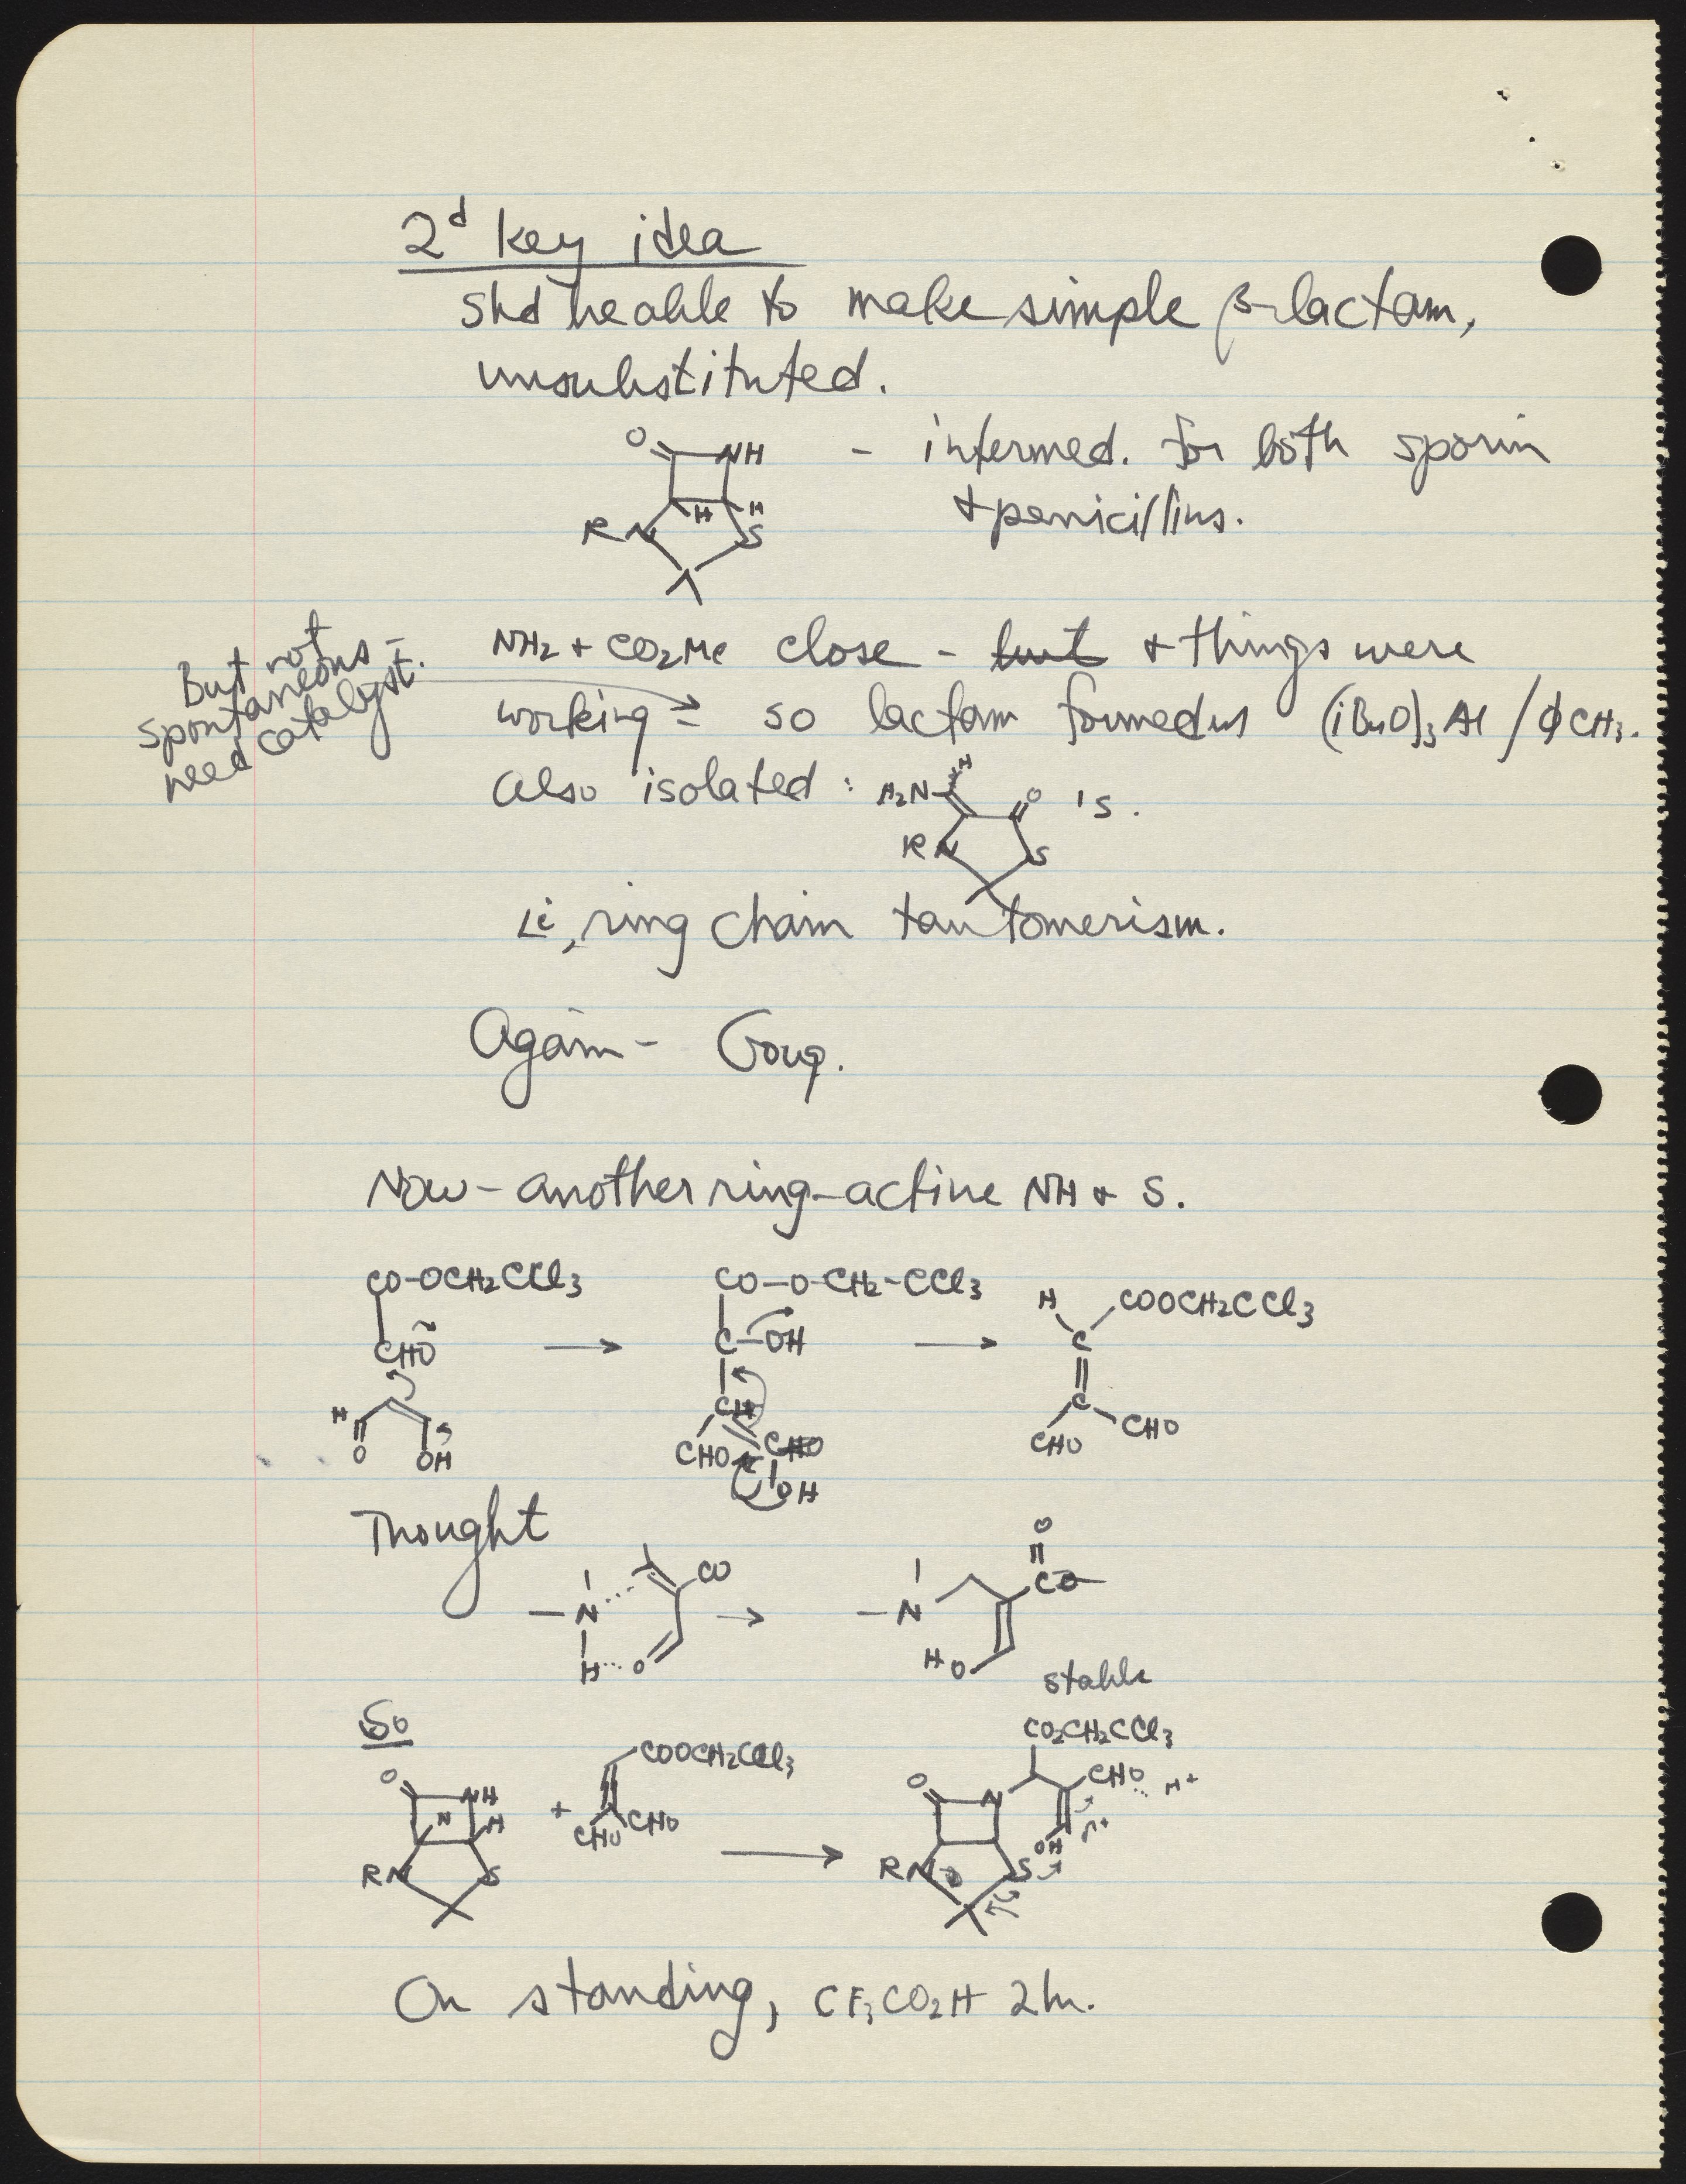 2d key idea
shd be able to make simple β-lactam,
unsubstituted.
O NH
H H
RN S
- intermed. for both sporin
+ penicillins.
But not
spontaneous -
need catalyst.
NH2 + CO2Me close - but + things were
working - so lactam formed (iBuO)3Al / ΦCH3.
Also isolated :
H
H2N O
RN S
's.
ring chain tautomerism.
Again - Goug.
Now - another ring - active NH + S.
CO-OCH2CCl3
CHO
H
O OH
→
CO-O-CH2-CCl3
C-OH
CH
CHO CHO
OH
→
H COOCH2CCl3
C
C
CHO CHO
Thought
N CO
H O
→
O
N CO
HO
stable
So
O NH
H H
RN S
+
COOCH2CCl3
CHO CHO
→
CO2CH2CCl3
O N CHO H+
OH H+
RN S
On standing, CF3CO2H 2hr.